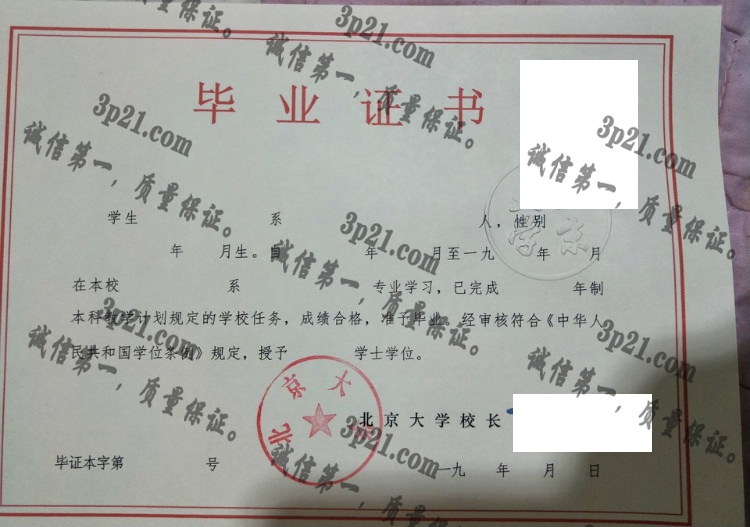 毕业证书
学生 系 人，性别
年 月生。自 年 月至一九 年 月
在本校 系 专业学习，已完成 年制
本科教学计划规定的学校任务，成绩合格，准予毕业。经审核符合《中华人
民共和国学位条例》规定，授予 学士学位。
北京大学校长
毕证本字第 号 一九 年 月 日
北京大
学京
3p21.com
诚信第一，质量保证。
3p21.com
诚信第一，质量保证。
3p21.com
诚信第一，质量保证。
3p21.com
诚信第一，质量保证。
3p21.com
诚信第一，质量保证。
3p21.com
诚信第一，质量保证。
3p21.com
诚信第一，质量保证。
质量保证。